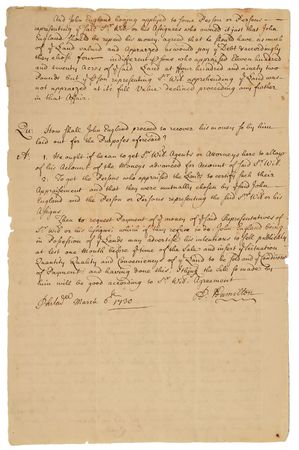 And John England having applyed to some Person or Persons
representing the said Sr Wm or his Assignes who owned it just that John
England should be repaid his money, agreed that he should have as much
of ye Land valued and appraized as would pay ye Debt & accordingly
they chose four indifferent Psons who appraized Seven hundred
and seventy Acres of ye said Land at four hundred and ninety two
Pounds But ye Pson representing Sr Wm apprehending ye Land was
not appraized at its full Value declined proceeding any further
in that Affair.
Qu: How shall John England proceed to recover his money so by him
laid out for the Purposes aforesaid?
A: 1. He ought if he can to get Sr Wms Agents or Attorneys here to allow
of his Account of the Moneys advanced for Account of said Sr Wm
2. To get the Persons who appraized the Lands to certify such their
Appraizement and that they were mutually chosen by ye said John
England and the Person or Persons representing the said Sr Wm or his
Assigns
Then to request Payment of ye money of ye said Representatives of
Sr Wm or his Assigns which if they refuse to do John England being
in Possession of ye Lands may Advertise his intentions to sell publickly
at lest one Month before ye time of the Sale and insert ye Scituation
Quantity Quality and Conveniencys of ye Land to be sold and ye Conditions
of Payment and having done this, I think the Sale so made by
him will be good according to Sr Wms Agreement
Philad March 6th 1730
A. Hamilton